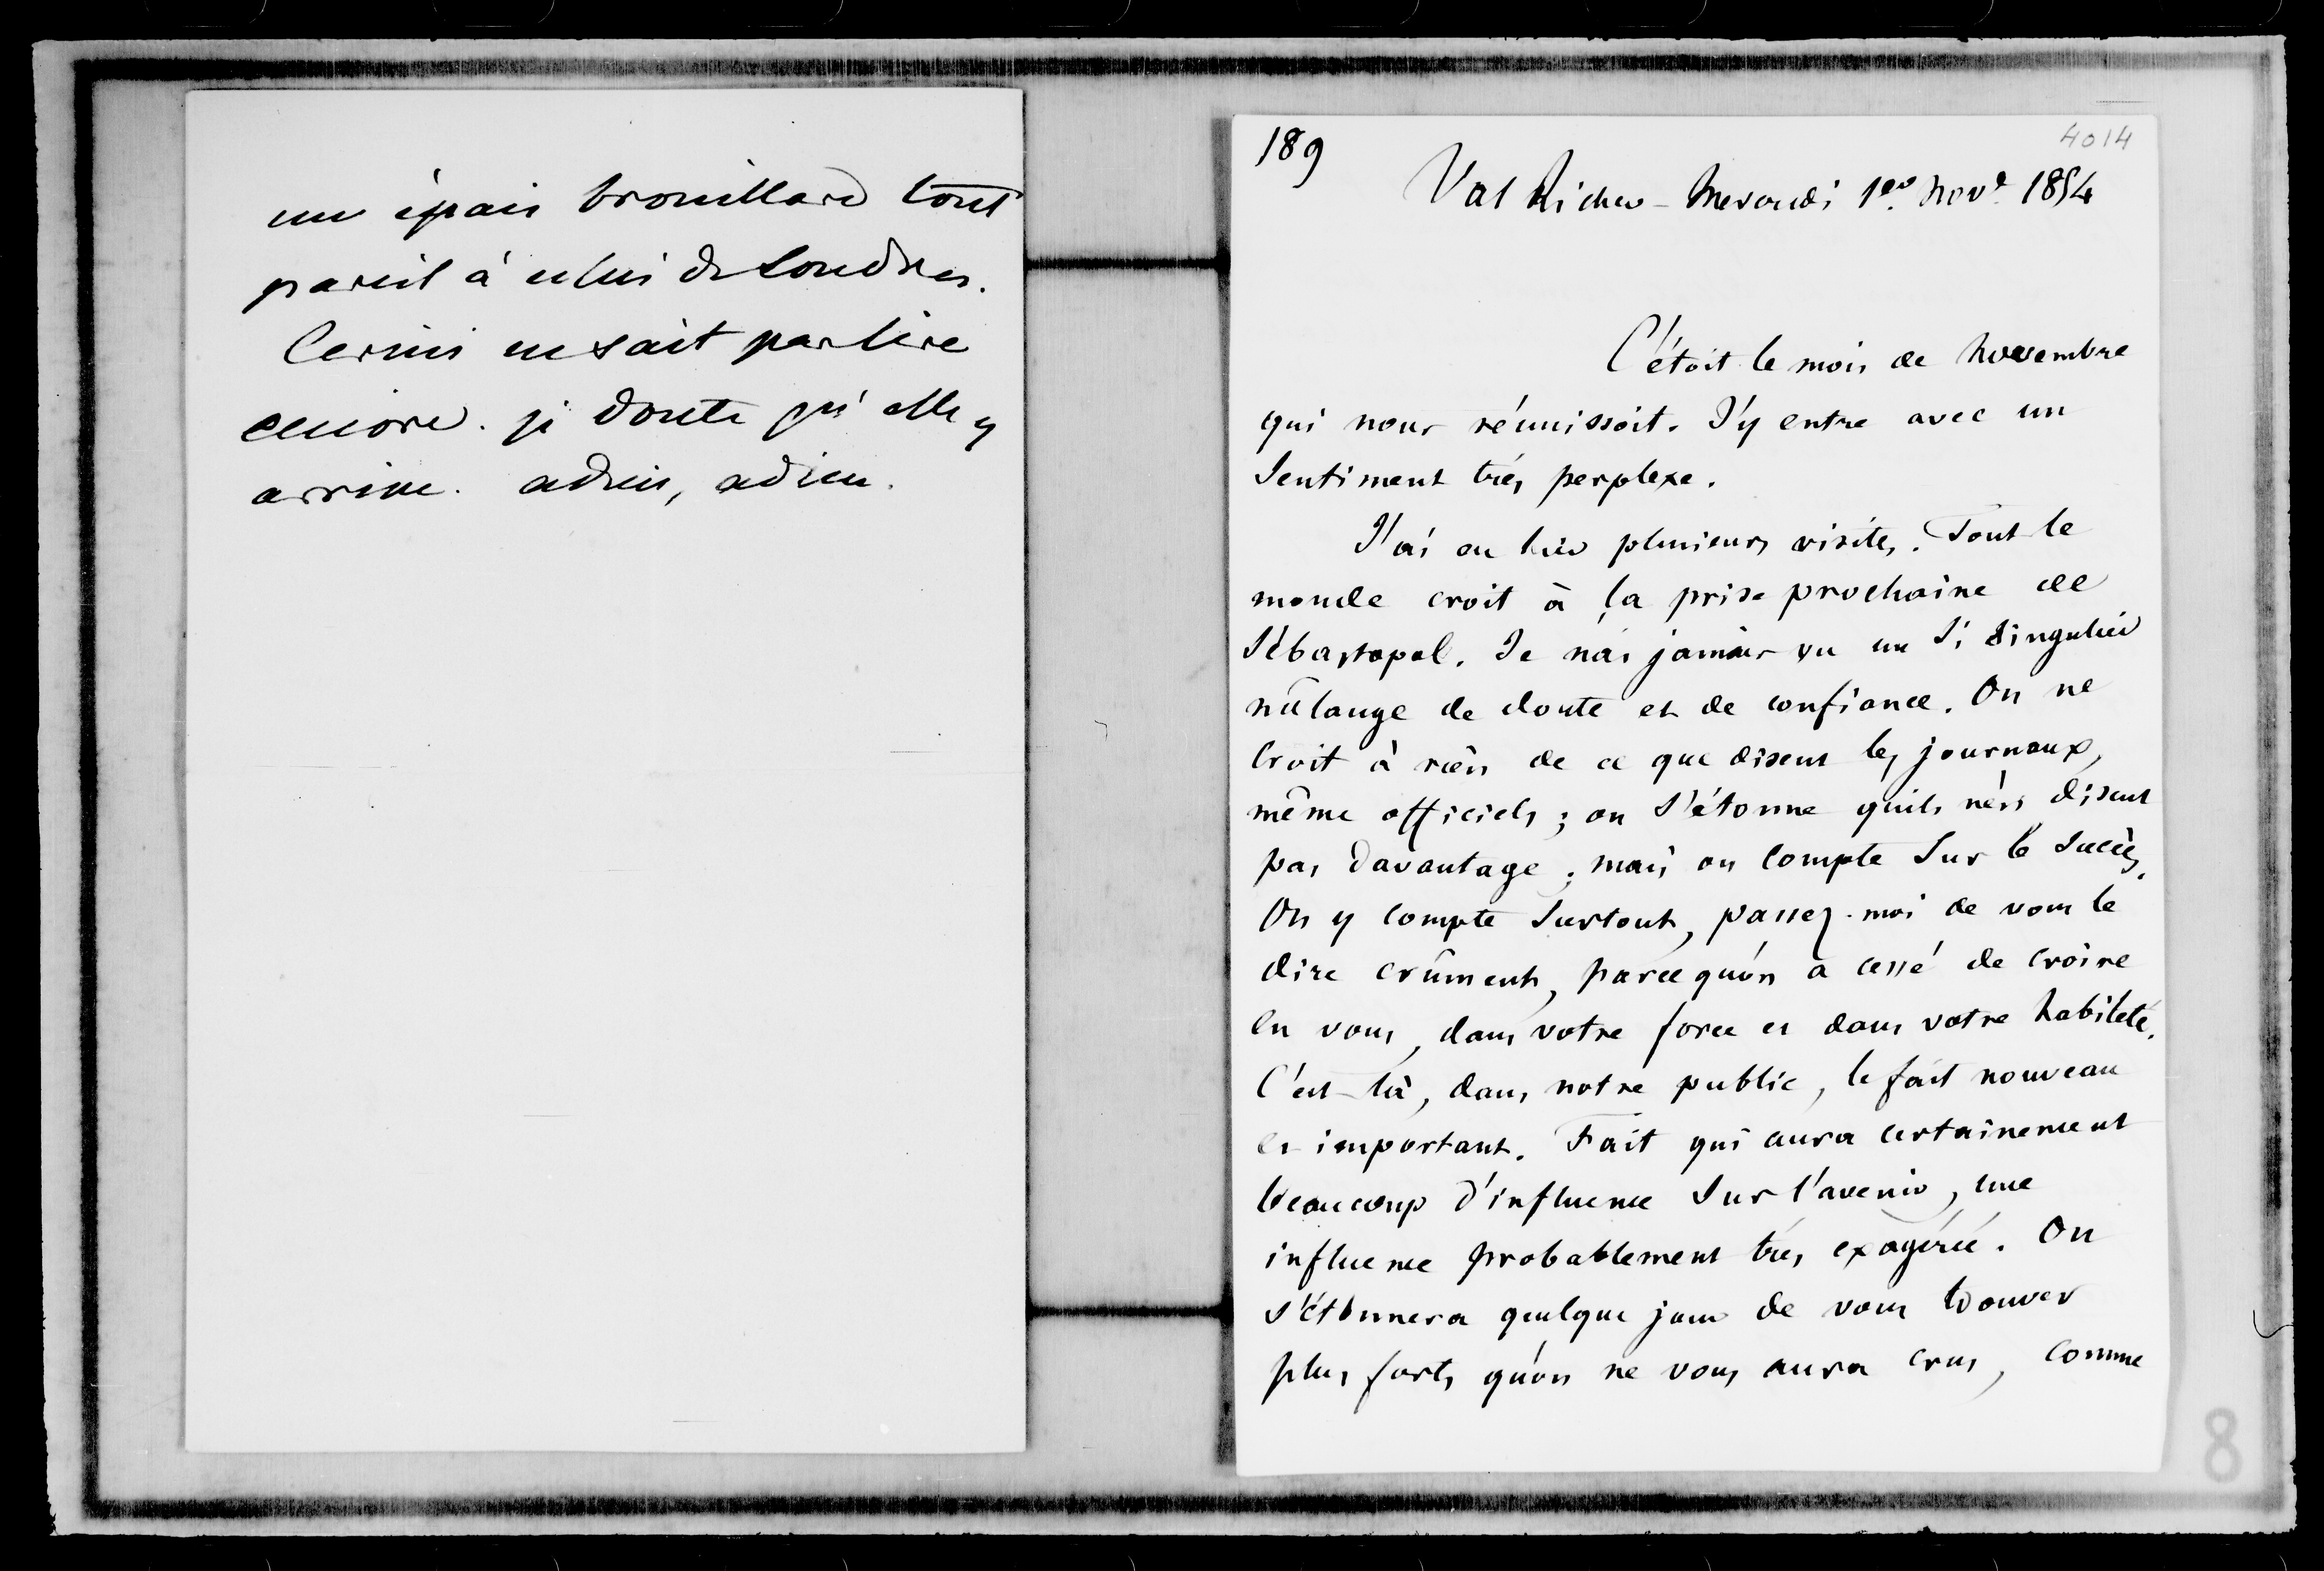 un épais brouillard tout
pareil à celui de Londres.
Cerini ne sait pas lire
encore. je doute qu'elle y
arrive. adieu, adieu.
189
4014
Val Richer - Mercredi 1er Nov.e 1854
C'étoit le mois de novembre
qui nous réunissoit. J'y entre avec un
sentiment très perplexe.
J'ai eu hier plusieurs visites. Tout le
monde croit à la prise prochaine de
Sébastopol. Je n'ai jamais vu un si singulier
mélange de doute et de confiance. On ne
croit à rien de ce que disent les journaux,
même officiels ; on s'étonne qu'ils n'en disent
pas davantage ; mais on compte sur le succès.
On y compte surtout, passez-moi de vous le
dire crûment, parcequ'on a cessé de croire
en vous, dans votre force et dans votre habileté.
C'est là, dans notre public, le fait nouveau
et important. Fait qui aura certainement
beaucoup d'influence sur l'avenir, une
influence probablement très exagérée. On
s'étonnera quelque jour de vous trouver
plus forts qu'on ne vous aura crus, comme
8